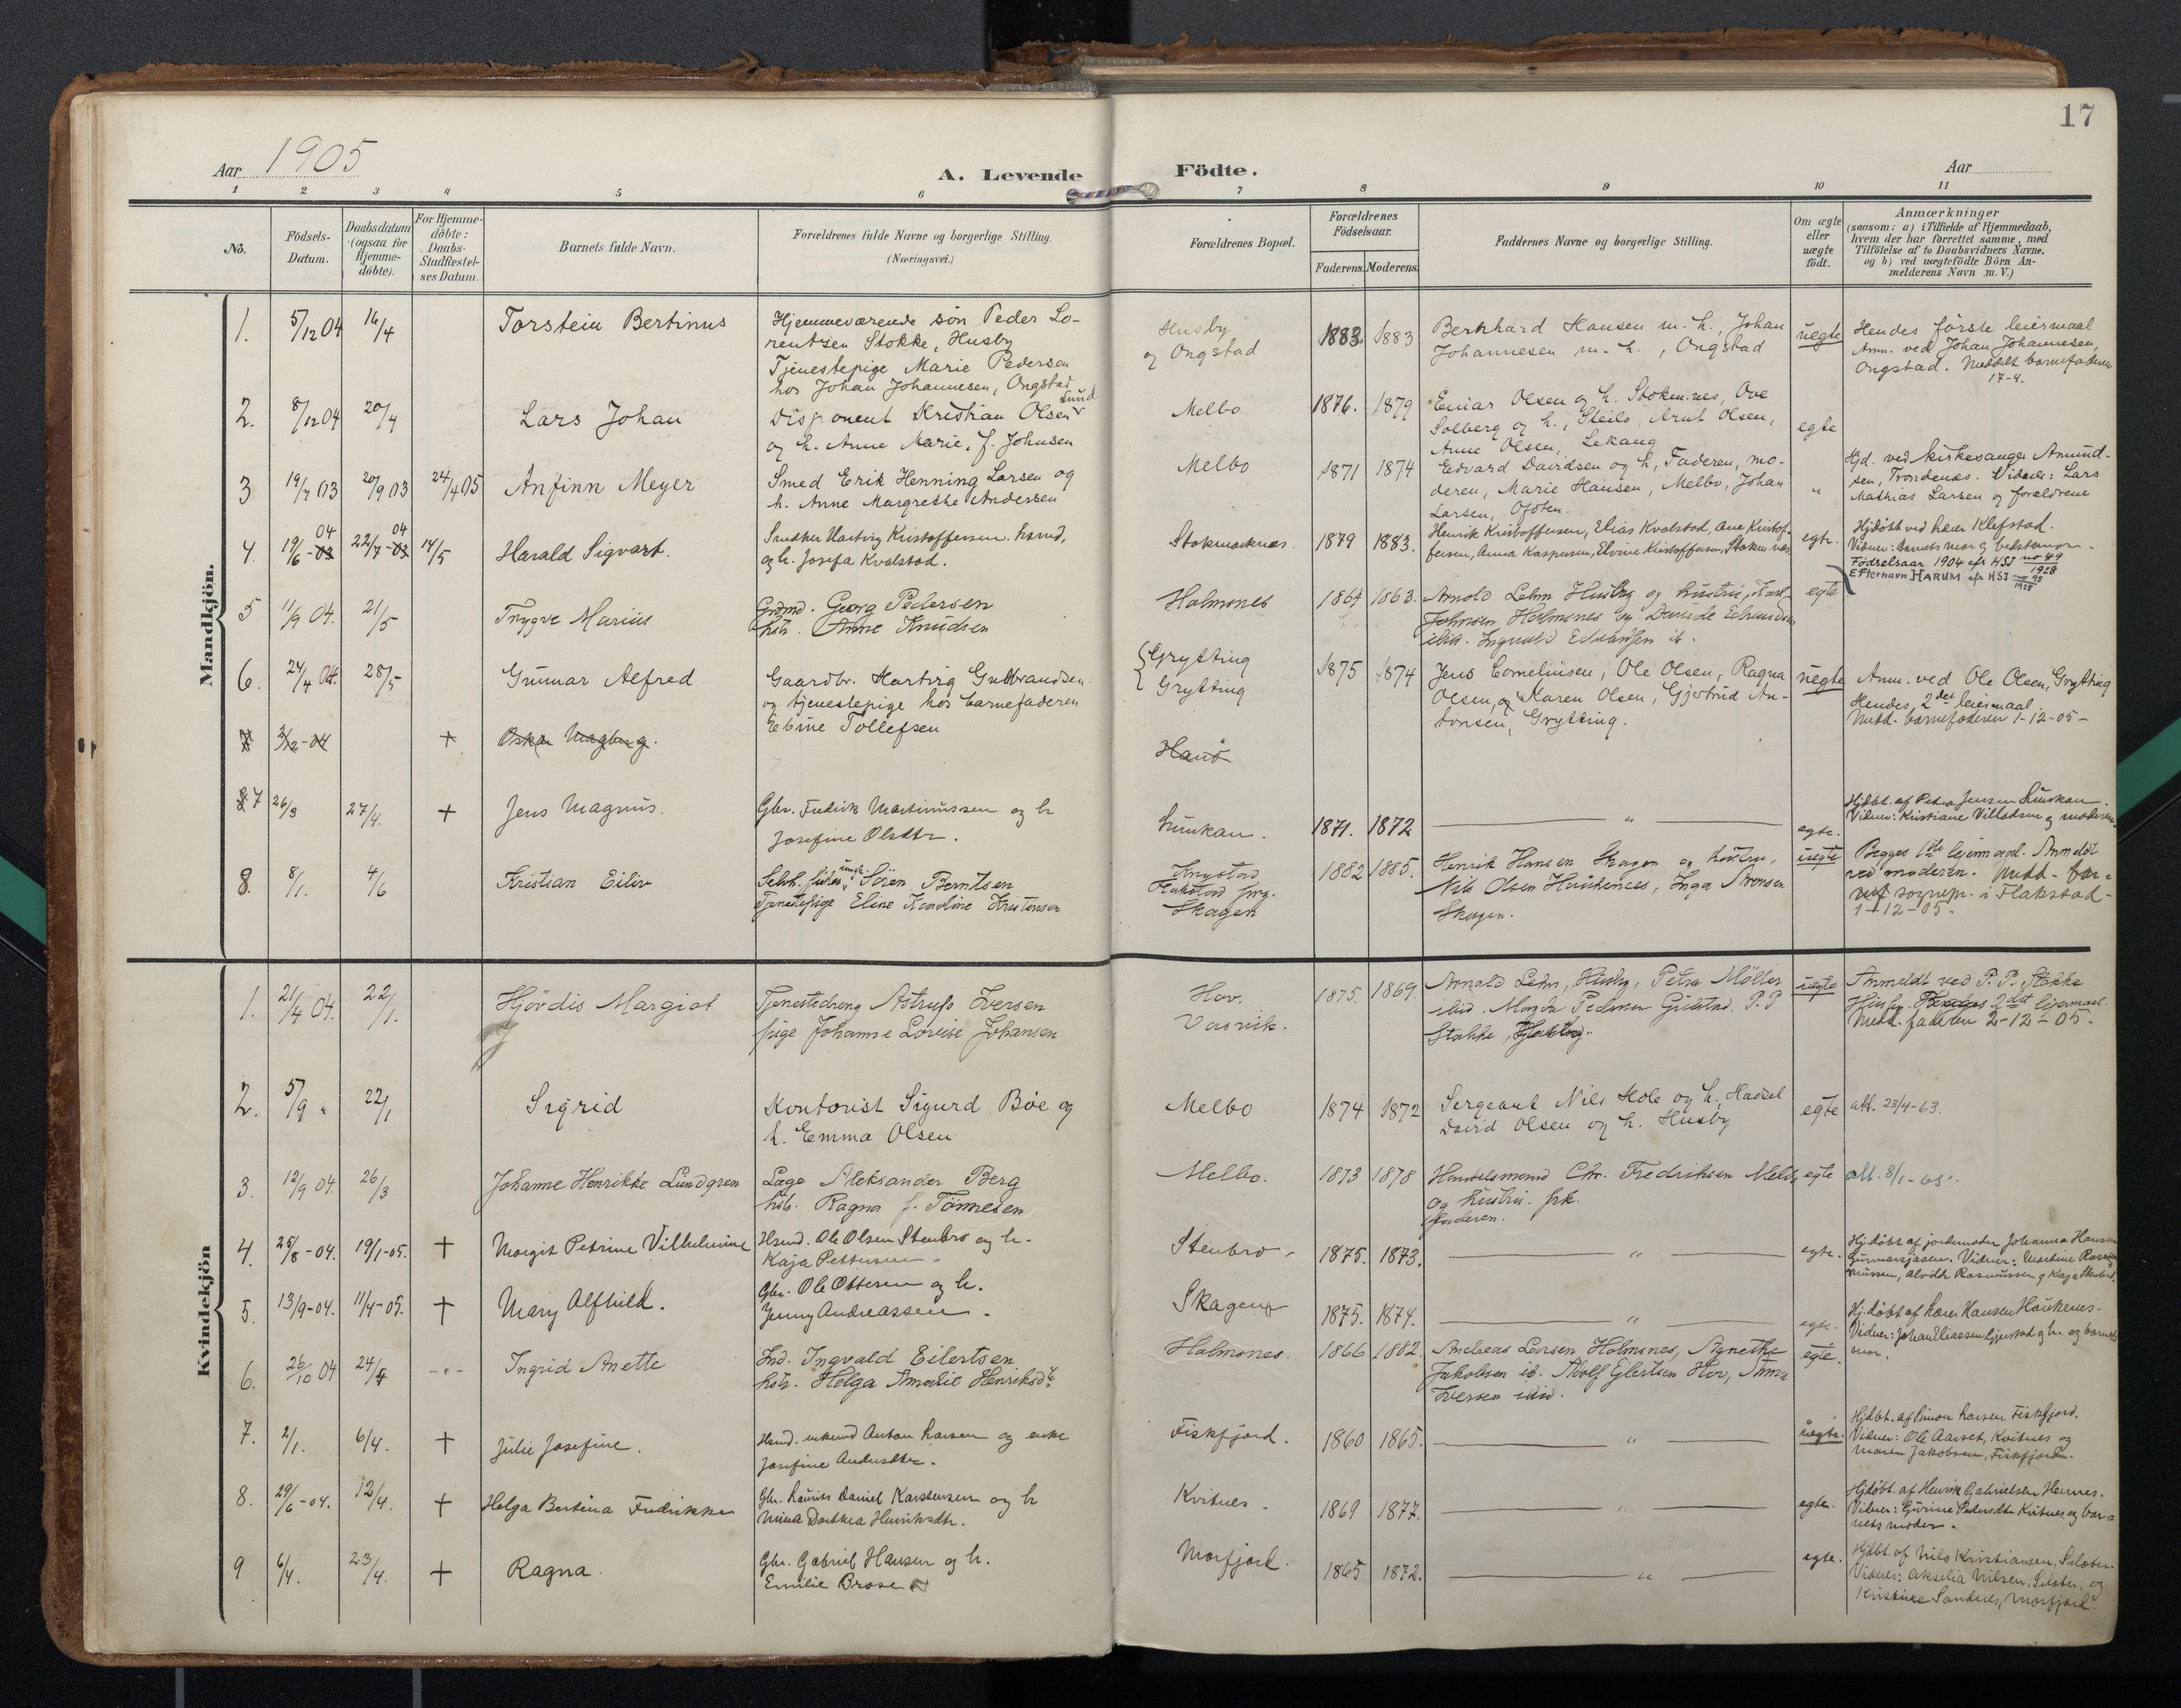 17
Aar 1905
A. Levende Födte.
Aar
1 2 3 4 5 6 7 8 9 10 11
No.
Födsels-Datum.
Daabsdatum (ogsaa for Hjemme-döbte).
For Hjemme-döbte: Daabs-Stadfæstel-ses Datum.
Barnets fulde Navn.
Forældrenes fulde Navne og borgerlige Stilling.
(Næringsvei.)
Forældrenes Bopæl.
Forældrenes Födselsaar.
Faderens. Moderens.
Faddernes Navne og borgerlige Stilling.
Om ægte eller uægte födt.
Anmærkninger
(saasom: a) i Tilfælde af Hjemmedaab,
hvem der har forrettet samme, med
Tilföielse af to Daabsvidners Navne,
og b) ved uægtefödte Börn An-
melderens Navn m. V.)
Mandkjön.
1. 5/12 04 16/4
Torstein Bertinus
Hjemmeværende søn Peder Lo-
rentsen Stokke, Husby
Tjenestepige Marie Pedersen
hos Johan Johannesen, Ongstad
Husby
og Ongstad
1883. 1883
Bernhard Hansen m. h., Johan
Johannesen m. h., Ongstad
uegte
Hendes første leiermaal
Anm. ved Johan Johannesen,
Ongstad. Meddelt barnefaderen
17-4.
2. 8/12 04 20/4
Lars Johan
Disponent Kristian Olsen Lund
og h. Anne Marie, f. Johnsen
Melbo
1876. 1879
Einar Olsen og h. Stokm.nes, Ove
Solberg og h., Steilo, Arnt Olsen,
Anne Olsen, Lekang
egte
3 19/7 03 20/9 03 24/4 05
Anfinn Meyer
Smed Erik Henning Larsen og
h. Anne Margrethe Andersen
Melbo
1871 1874
Edvard Davidsen og h, Faderen, mo-
deren, Marie Hansen, Melbo, Johan
Larsen, Ofoten.
"
Hjd. ved kirkesanger Amund-
sen, Trondenæs. Vidner: Lars
Mathias Larsen og forældrene
4. 19/6-03 04 22/7-03 04 14/5
Harald Sigvart.
Snedker Hartvig Kristoffersen. Harmd,
og h. Josefa Kvalstad.
Stokmarknæs.
1879 1883.
Henrik Kristoffersen, Elias Kvalstad, Ane Kristof-
fersen, Anna Kaspersen, Elvine Kristoffersen, Stokm.næs
egte.
Hjdöbt ved lærer Klefstad.
Vidner: Barnets mor og bedstemor.
Födselsaar 1904 efr HSJ no 49 1928
Efternavn HARUM efr HSJ 1928
5 11/9 04. 21/5
Trygve Marius
Grdmd. Georg Pedersen
hstr. Anne Knudsen
Holmsnes
1864 1863.
Arnold Lehn Husby og hustru, Karl
Johnsen Holmsnes
egte
6. 24/4 04. 28/5
Gunnar Alfred
Gaardbr. Hartvig Gulbrandsen.
og tjenestepige hos barnefaderen
Ebine Tollefsen
Grytting
Grytting
1875 1874
Jens Corneliusen, Ole Olsen, Ragna
Olsen, og Karen Olsen, Gjertrud An-
tonsen, Grytting.
uegte
Anm. ved Ole Olsen, Grytting
Hendes 2det leiermaal.
Medd. barnefaderen 1-12-05-
7 3/12-04 +
Oskar Magberg.
Hanø
8 7 26/3 27/4. +
Jens Magnus.
Gbr. Fredrik Martinussen og h
Josefine Olsdtr.
Lunkan.
1871. 1872
"
egte.
Hjdöbt. af Petra Jensen Lunkan.
Vidner: Kristiane Villadsen og moderen.
8. 8/1. 4/6
Kristian Eiliv
Selvh. fisker, ungk. Sören Berntsen
Tjenestepige Eline Karoline Kristensen
Knystad
Flakstad prg.
Skagen
1882 1885.
Henrik Hansen Skagen og hustru,
Nils Olsen Haukenes, Inga Svensen
Skagen.
uegte
Begges 1ste lejermaal. Anmeldt
ved moderen. Medd-
sognepr. i Flakstad-
1-12-05-
Kvindekjön
1. 21/4 04. 22/1.
Hjördis Margiot
Tjenestedreng Astrup Iversen
pige Johanne Lovise Johansen
Hov.
Vasvik.
1875. 1869.
Arnold Lehn, Husby, Petra Möller
ibid. Magda Pedersen Guldstad. P. P.
Stokke,
uegte
Anmeldt ved P. P. Stokke
Husby. 2det lejermaal.
Medd. faderen 2-12-05.
2. 5/9 " 22/1
Sigrid
Kontorist Sigurd Bøe og
h. Emma Olsen
Melbo
1874 1872
Sergeant Nils Hole og h., Hadsel
David Olsen og h. Husby
egte
att. 23/4-63.
3. 12/9 04. 26/3
Johanne Henrikke Lundgren
Læge Aleksander Berg
hstr. Ragna f. Tönnesen
Melbo.
1873 1878
Handelsmand Chr. Fredriksen Melbo
og hustru. frk.
faderen.
egte
att. 8/1-65.
4. 25/8-04. 19/1-05. +
Margit Petrine Vilhelmine
Hsmd. Ole Olsen Stenbro og h.
Kaja Pettersen
Stenbro
1875. 1873.
"
egte.
Hj.döbt af jordemoder Johanna Hansen
Gunnarsjaaen. Vidner: Martine Ras-
mussen, Alvdtn Rasmussen og Kaja Stenbro.
5. 13/9-04. 11/4-05. +
Mary Alfhild.
Gbr. Ole Ottesen og h.
Jenny Andreassen
Skagen
1875. 1874.
"
egte.
Hj.döbt af lærer Hansen Haukenes.
Vidner: Johan Eliassen Gjerstad og h. og barnets
mor.
6. 26/10 04 24/4 -"-
Ingrid Anette
Ind. Ingvald Eilertsen
hstr. Helga Amalie Henriksdtr
Holmsnes.
1866 1882.
Andreas Larsen Holmsnes, Agnethe
Jakobsen ib. Adolf Ejlertsen Hov, Anna
Iversen ibid.
egte.
7. 2/1. 6/4. +
Julie Josefine.
Hsmd. enkemd Anton Larsen og enke
Josefine Andersdtr.
Fiskfjord.
1860 1865.
"
uegte.
Hjdöbt. af Simon Larsen Fiskfjord.
Vidner: Ole Aarset, Kvitnes og
Maren Jakobsen, Fiskfjord.
8. 29/6-04. 12/4. +
Helga Bertina Fredrikke
Gbr. Laurits Daniel Karstensen og h
Mina Dorthea Henriksdtr.
Kvitnes
1869 1877.
"
egte.
Hjdöbt. af Henrik Gabrielsen Hennes.
Vidner: Gurine Pedersdtr Kvitnes og bar-
nets moder.
9 6/4. 23/4. +
Ragna.
Gbr. Gabriel Hansen og h.
Emilie Brose
Morfjord.
1865 1872.
"
egte.
Hjdöbt. af Nils Kristiansen, Selater.
Vidner: Akselia Nilsen, Selater, og
Kristine Sandnes, Morfjord.